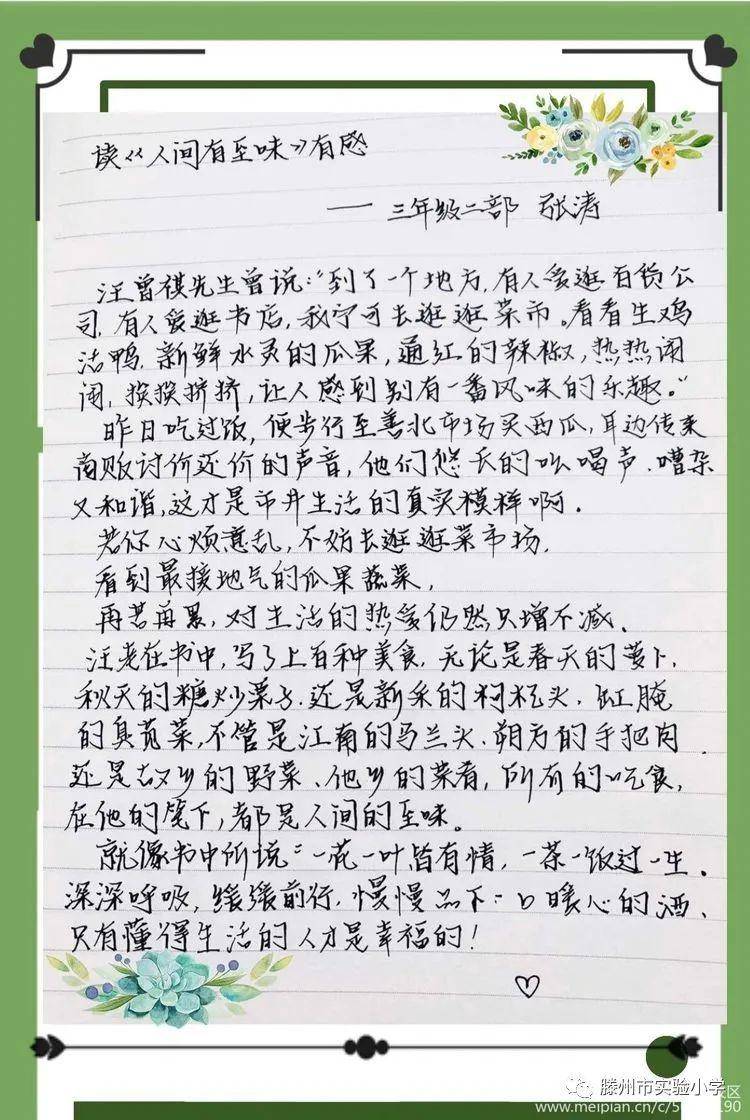 读《人间有至味》有感
——三年级二部 张涛
汪曾祺先生曾说:“到了一个地方,有人爱逛百货公
司,有人爱逛书店,我宁可去逛逛菜市。看看生鸡
活鸭、新鲜水灵的瓜果,通红的辣椒,热热闹
闹,挨挨挤挤,让人感到别有一番风味的乐趣。”
昨日吃过饭,便步行至善北市场买西瓜,耳边传来
商贩讨价还价的声音,他们悠长的吆喝声、嘈杂
又和谐,这才是市井生活的真实模样啊.
若你心烦意乱,不妨去逛逛菜市场,
看到最接地气的瓜果蔬菜,
再苦再累,对生活的热爱仍然只增不减.
汪老在书中,写了上百种美食,无论是春天的萝卜、
秋天的糖炒栗子.还是新采的枸杞头、缸腌
的臭苋菜,不管是江南的马兰头、朔方的手把肉
还是故乡的野菜、他乡的菜肴,所有的吃食,
在他的笔下,都是人间的至味。
就像书中所说:一花一叶皆有情,一茶一饭过一生.
深深呼吸,缓缓前行,慢慢品下一口暖心的酒、
只有懂得生活的人才是幸福的!
滕州市实验小学
www.meipian.cn/c/5
190